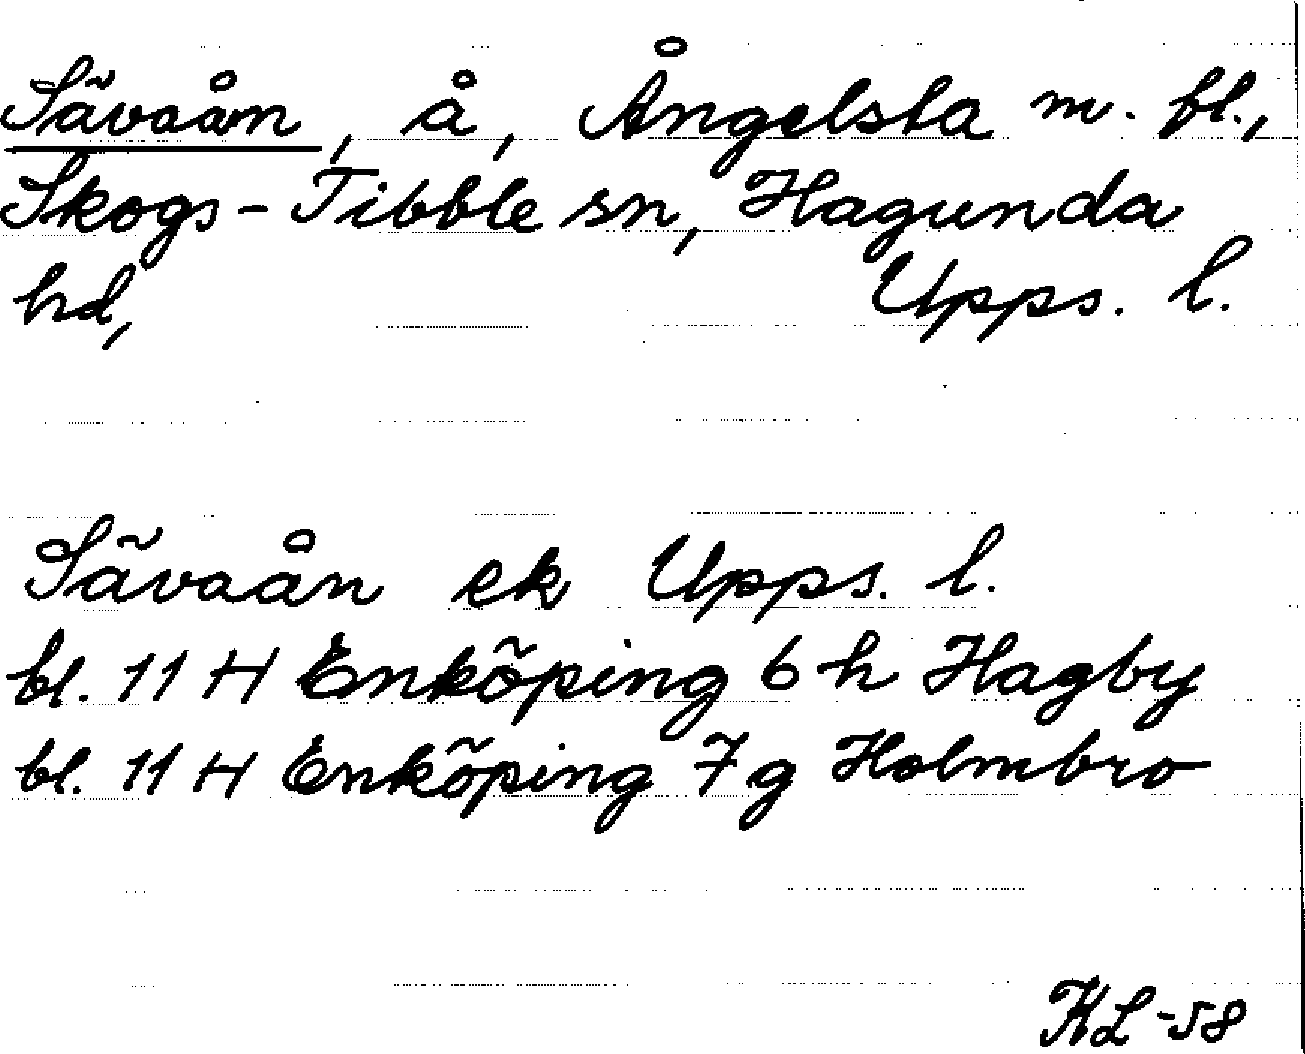 Sävaån, å, Ångelsta m. fl.,
Skogs-Tibble sn, Hagunda
hd, Upps. l.
Sävaån ek Upps. l.
bl. 11 H Enköping 6 h Hagby
bl. 11 H Enköping 7 g Holmbro
KL-58